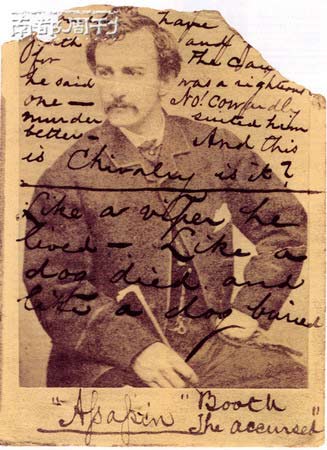 南都周刊
have
and
for the
he said was a righteous
one — No! Cowardly
murder suited him
better— And this
is Chivalry is it?
Like a viper he
lived — Like a
dog died and
like a dog buried
"Assassin" Booth
The accursed"